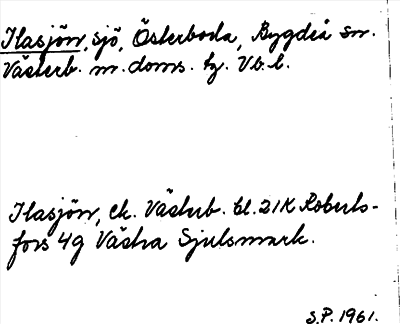 Ilasjön, sjö, Österboda, Bygdeå sn.
Västerb. n. doms. tg. Vb. l.
Ilasjön, ek. Västerb. bl. 21K Roberts-
fors 4g Västra Sjulsmark.
S.P. 1961.